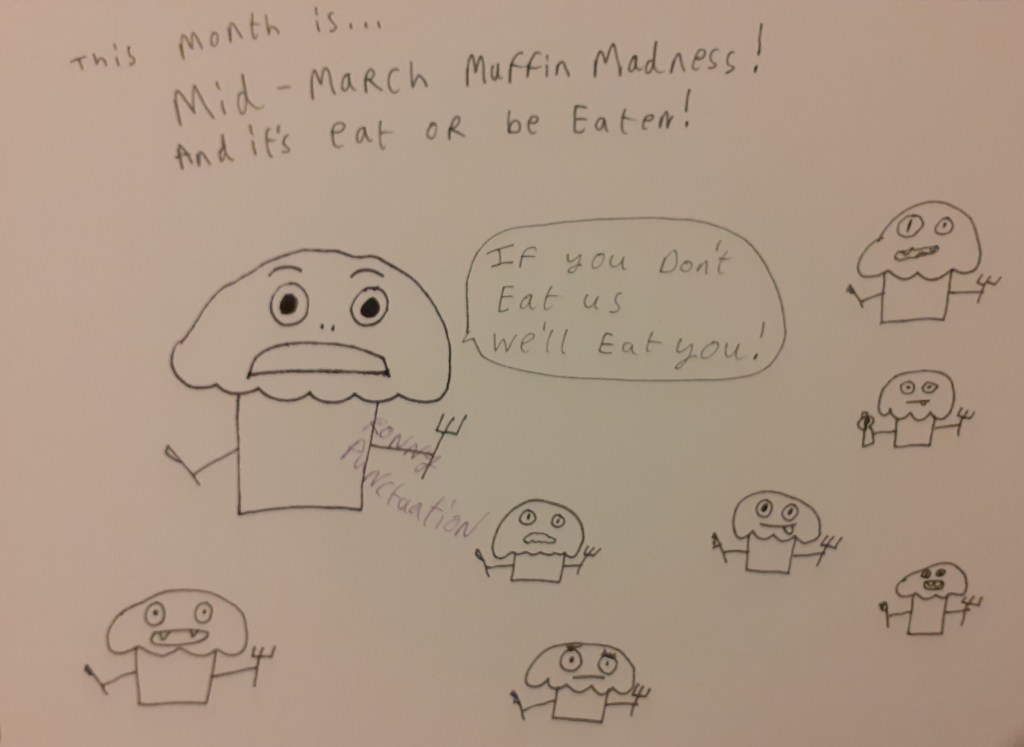 This month is...
Mid-March Muffin Madness!
And it's eat or be Eaten!
If you Don't
Eat us
we'll Eat you!
Ronny
Punctuation